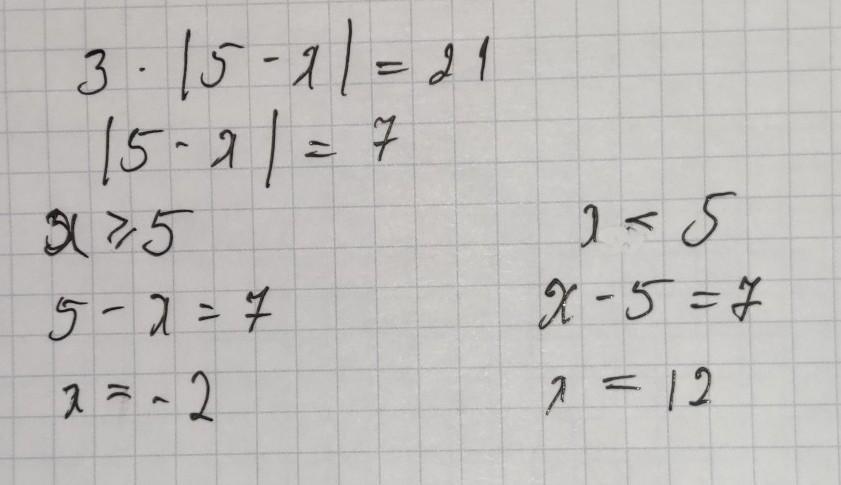 3 · |5 - x| = 21
|5 - x| = 7
x ⩾ 5
x < 5
5 - x = 7
x - 5 = 7
x = - 2
x = 12